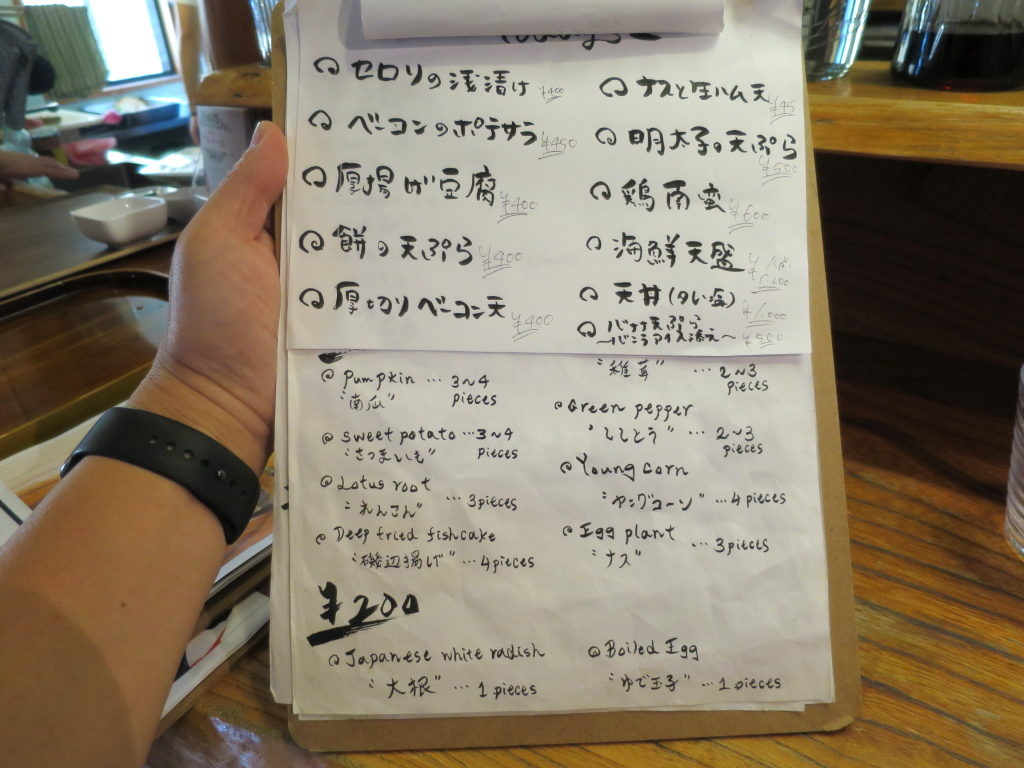 セロリの浅漬け ¥400
ベーコンのポテサラ ¥450
厚揚げ豆腐 ¥400
餅の天ぷら ¥400
厚切りベーコン天 ¥400
ナスと生ハム天
明太子の天ぷら ¥500
鶏南蛮 ¥600
海鮮天盛
天丼(タレ・塩) ¥1,000
バナナ天ぷら
〜バニラアイス添え〜 ¥500
Pumpkin … 3〜4
"南瓜" pieces
sweet potato … 3〜4
"さつまいも" pieces
Lotus root
"れんこん" … 3pieces
Deep fried fishcake
"磯辺揚げ" … 4pieces
"椎茸" … 2〜3
pieces
Green pepper
"ししとう" … 2〜3
pieces
Young corn
"ヤングコーン" … 4pieces
Egg plant
"ナス" … 3pieces
¥200
Japanese white radish
"大根" … 1 pieces
Boiled Egg
"ゆで玉子" … 1 pieces